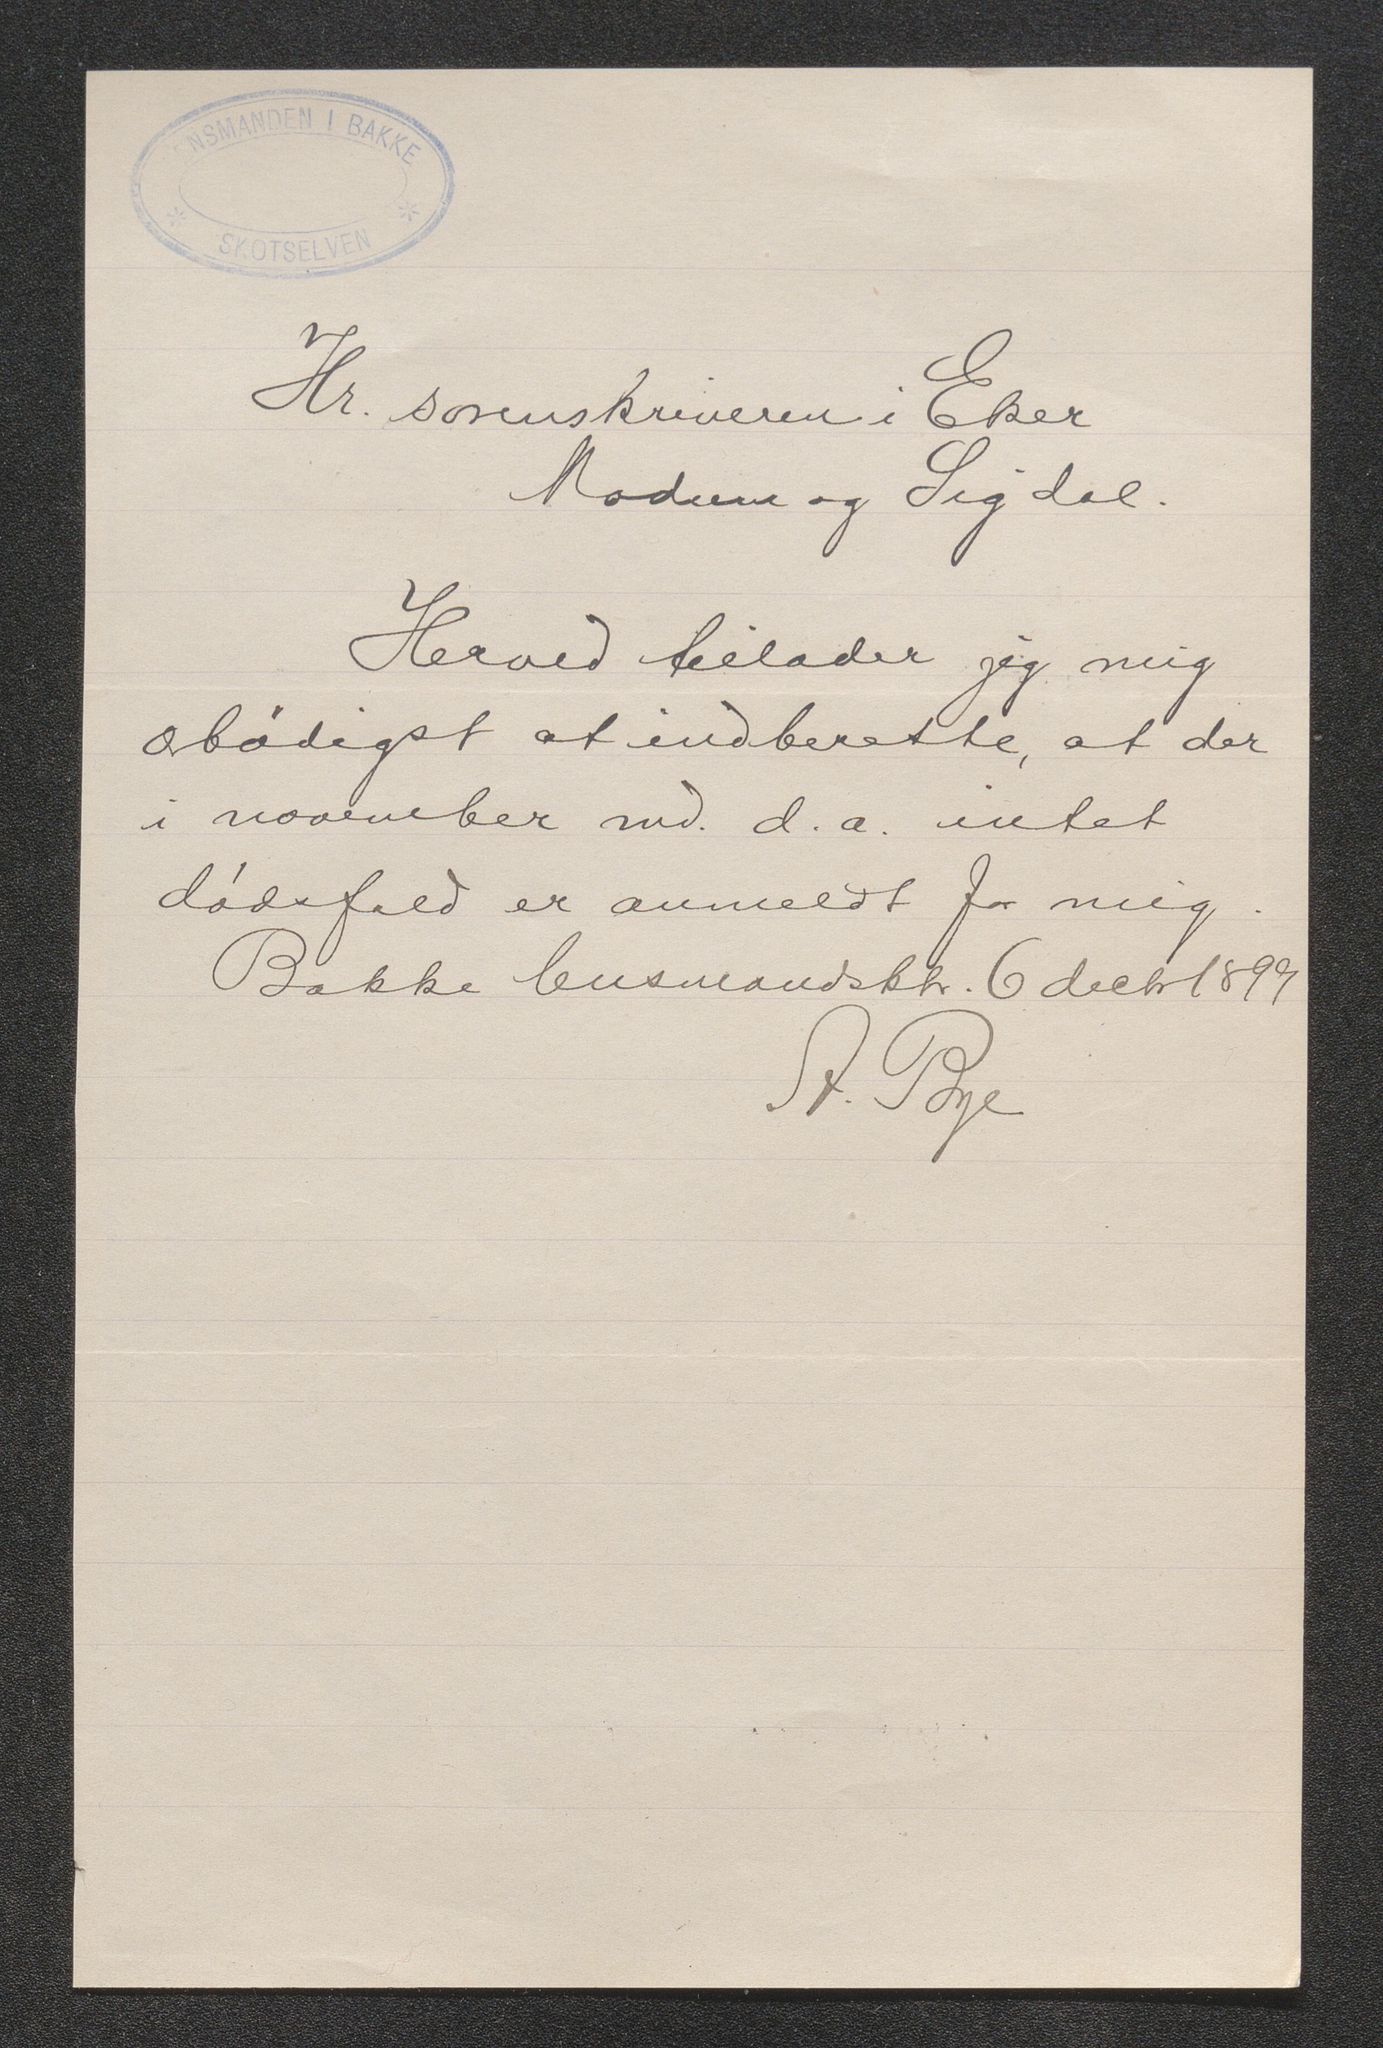 ENSMANDEN I BAKKE
SKOTSELVEN
Hr. sorenskriveren i Eker
Modum og Sigdal.
Herved tillader jeg mig
ærbødigst at indberette, at der
i november md. d. a. intet
dødsfald er anmeldt for mig.
Bakke lensmandsktr. 6 decbr 1899
A. Bye